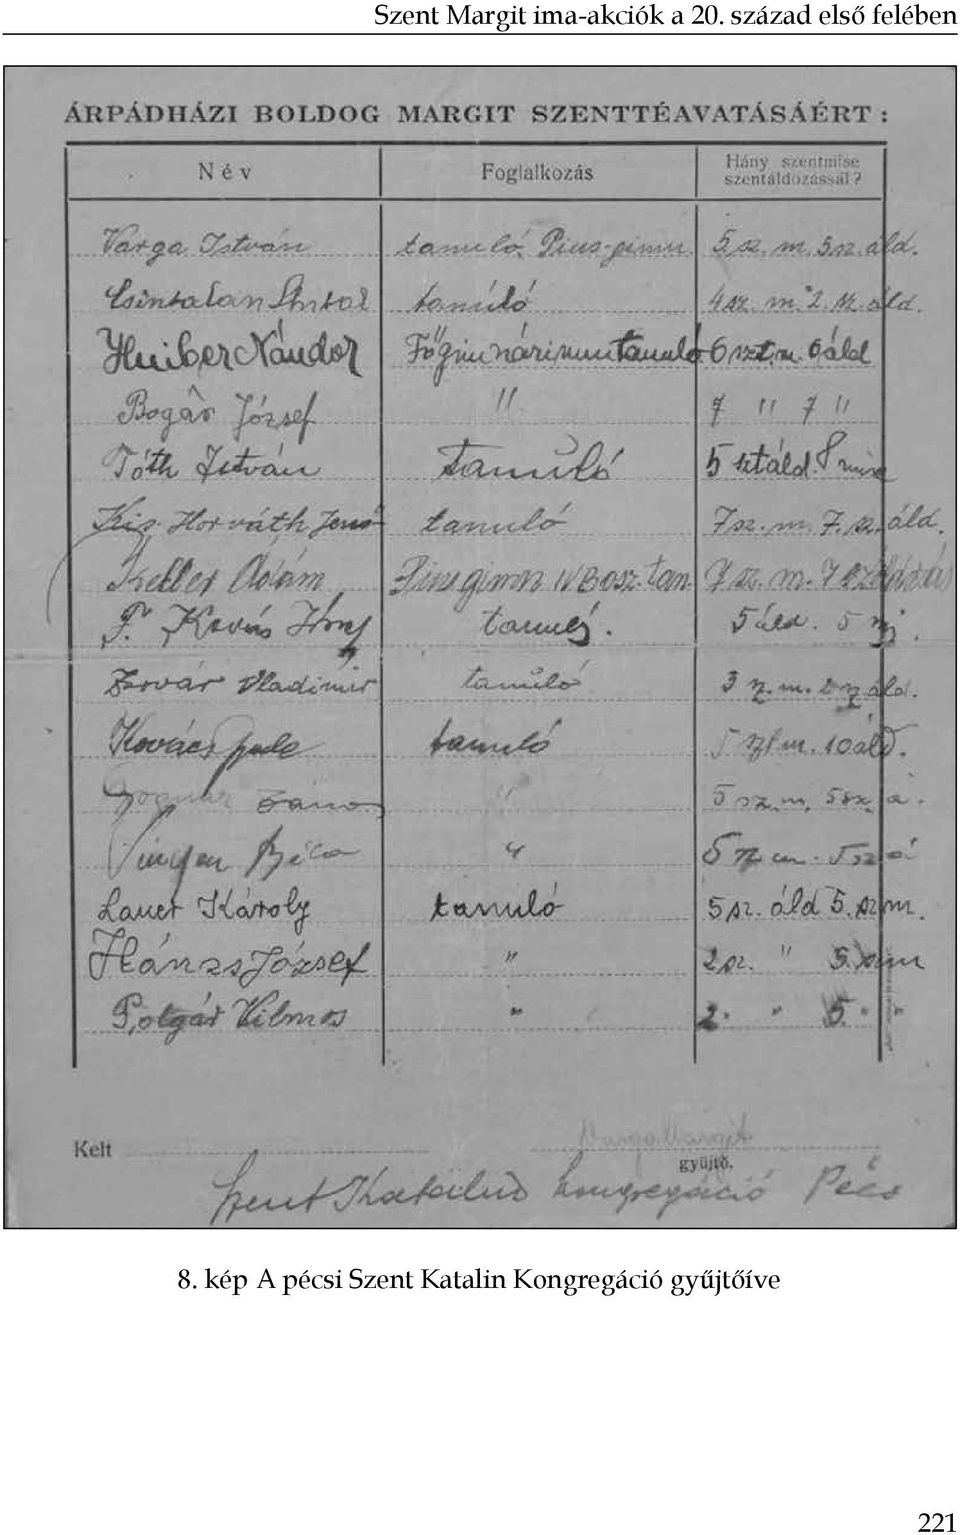 Szent Margit ima-akciók a 20. század első felében
ÁRPÁDHÁZI BOLDOG MARGIT SZENTTÉAVATÁSÁÉRT:
Név Foglalkozás Hány szentmise szentáldozással?
Varga István tanuló Pius-gimn. 5 sz. m. 5 sz. áld.
Csintalan Antal tanúló 4 sz. m. 2. sz. áld.
Huiber Nándor Főgimnáriumi tanuló 6 szt. m. 6 áld
Bogár József " 7 " 7 "
Tóth István tanuló 5 sztáld. 8 mise
Kis Horváth Jenő tanuló 7 sz. m. 7. sz. áld.
Keller Ádám Pius gimn IV B osz. tan. 7 sz. m. 7
F. Kovás 5 áld. 5
Zsovár Vladimir tanuló 3 áld.
Kovács tanuló 5 szt m. 10 áld.
" 5 sz. m. 5 sz. á.
Béla " 5
Lauer Károly tanuló 5 sz. áld 5. szm.
Hánzs József " 2 sz. " 5. szm
Polgár Vilmos " 2. " 5. "
Kelt Varga Margit
gyűjtő.
Szent Katalin kongregáció Pécs
8. kép A pécsi Szent Katalin Kongregáció gyűjtőíve
221